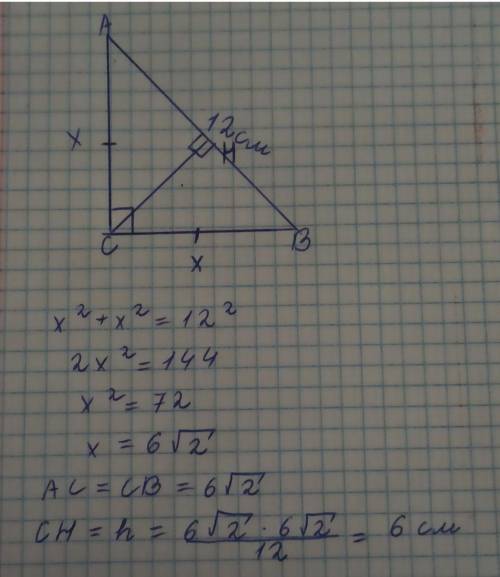 A
12см
H
x
C
B
x
x² + x² = 12²
2x² = 144
x² = 72
x = 6√2
AC = CB = 6√2
CH = h = (6√2 · 6√2)/12 = 6 см